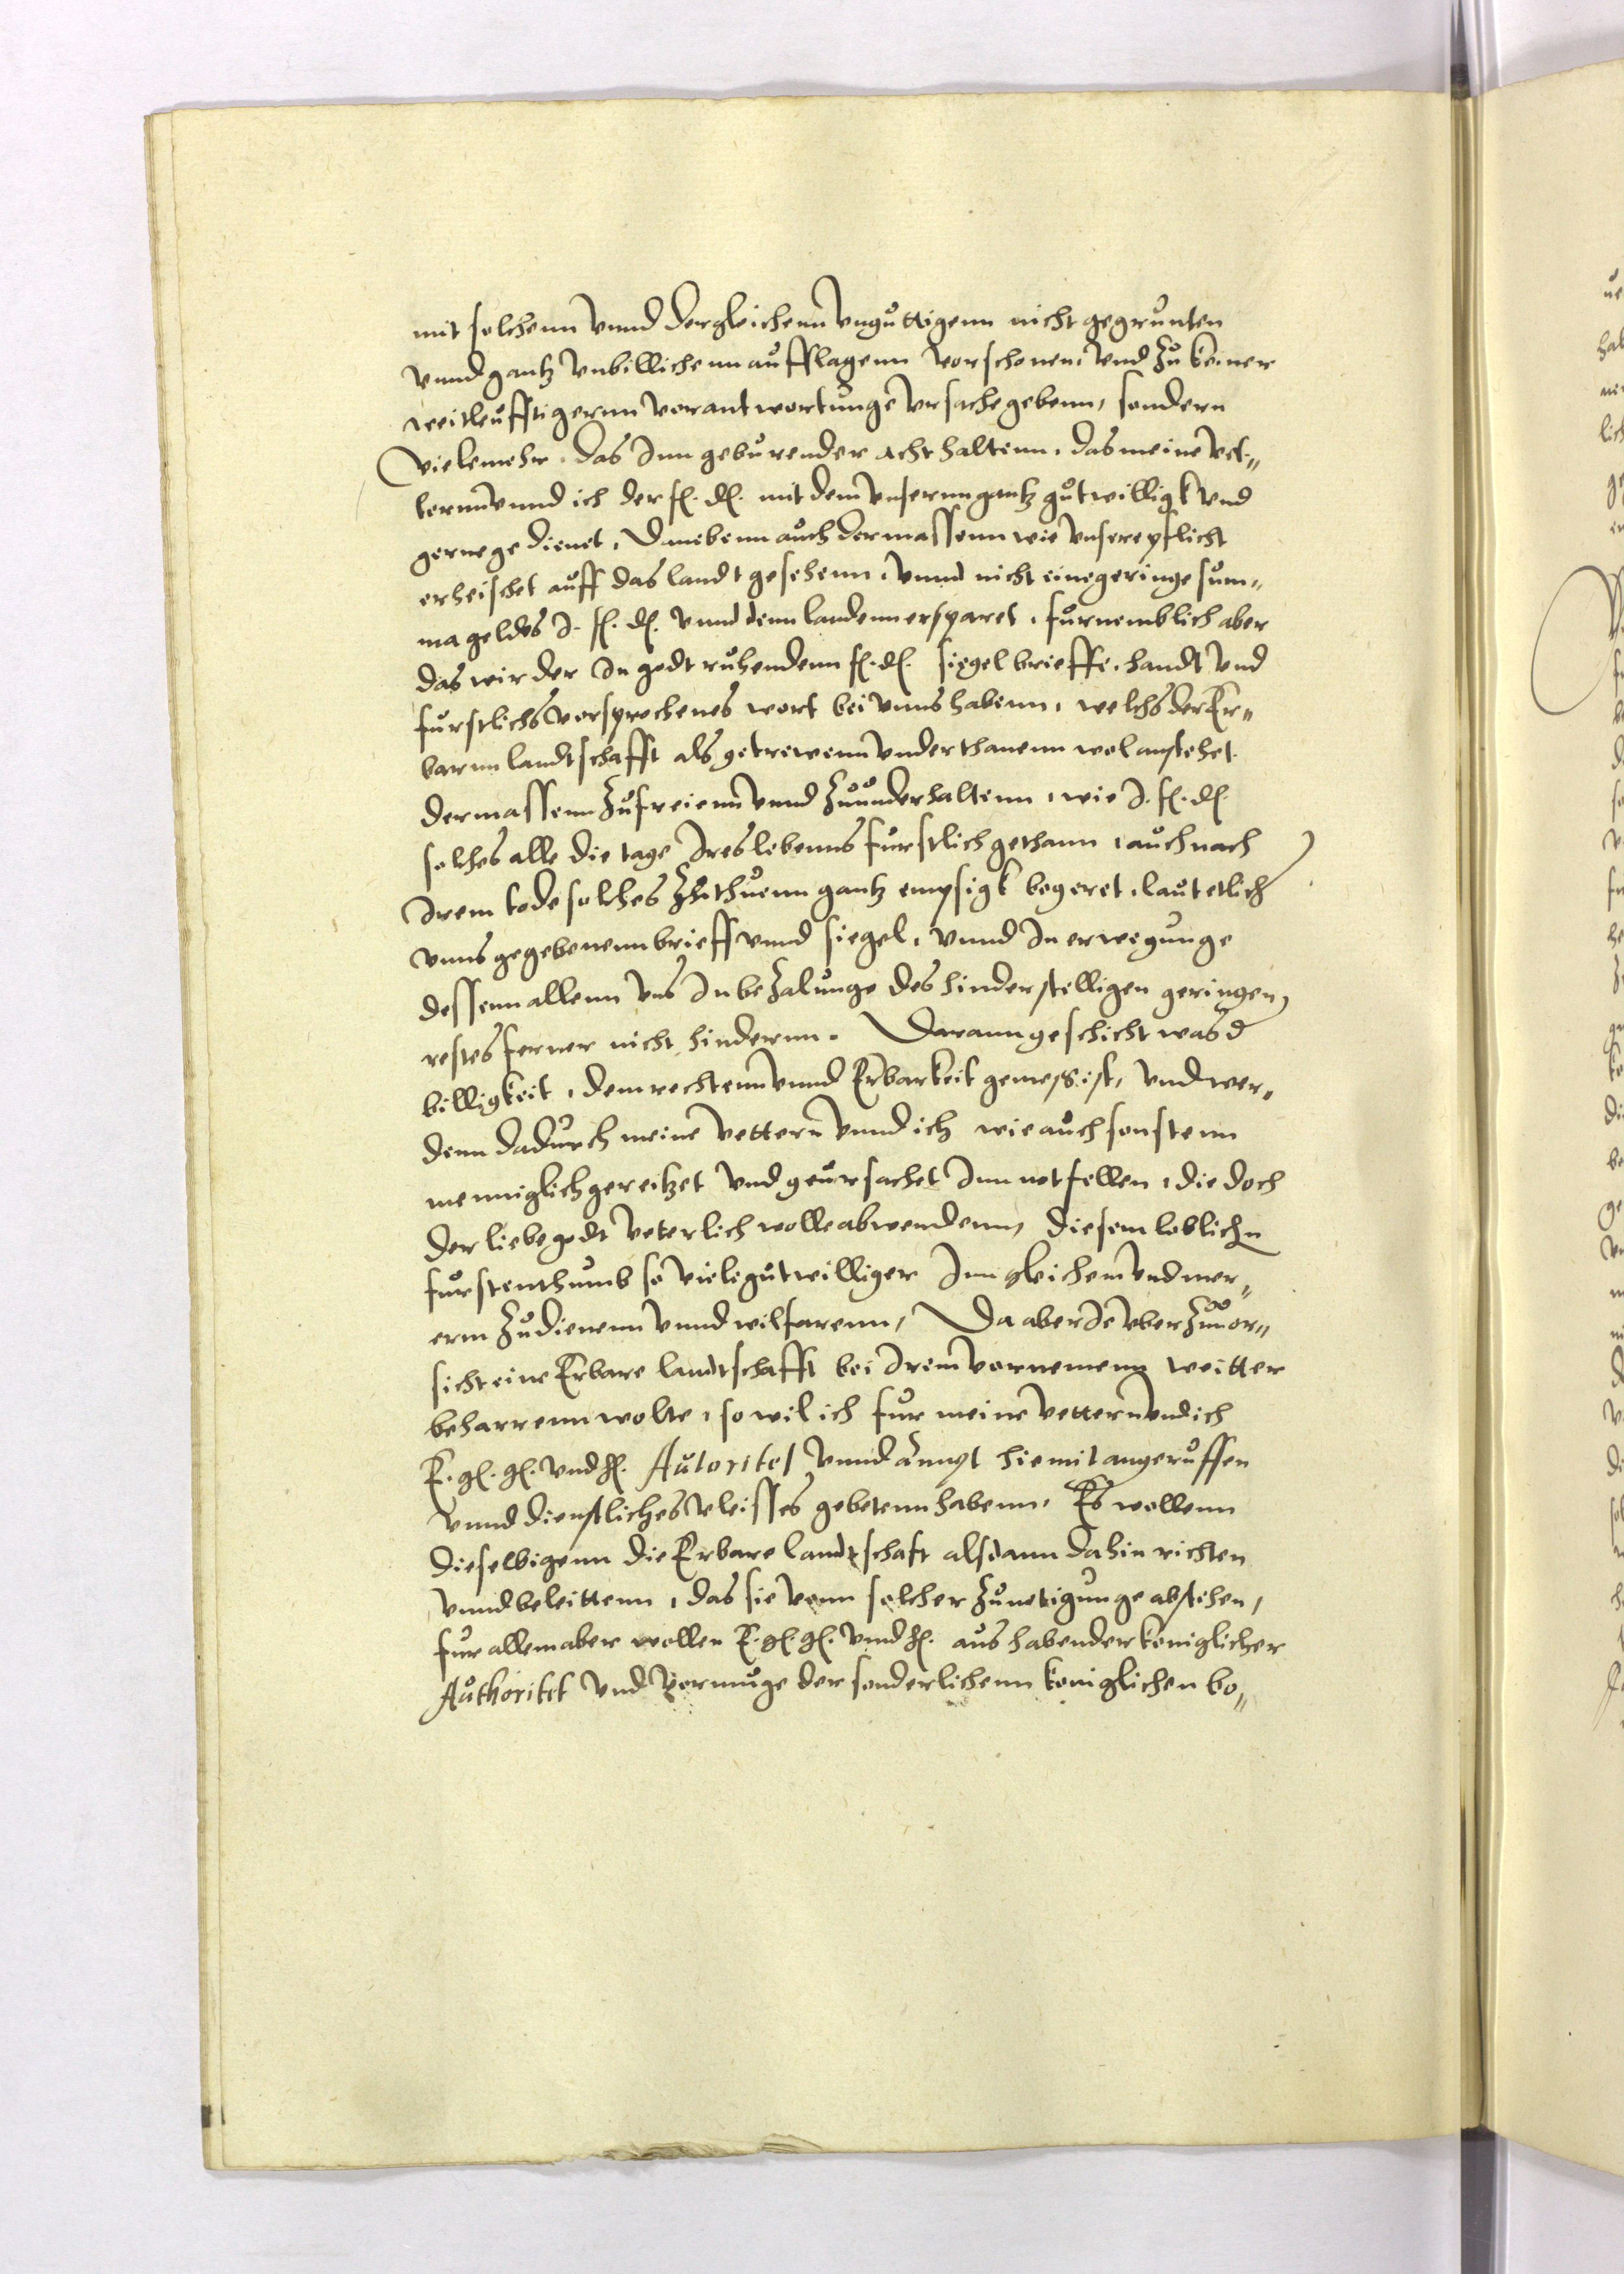 mit solchenn vnnd dergleichenn vngůttigenn nicht gegrůnten
vnnd gantz vnbillichenn aufflagenn vorschonenn vnd zu keiner
weitleufftigernn vorantwortunge vrsache gebenn, sondern
vielemehr das Inn geburender acht haltenn, das meine vet-
ternn vnnd ich der fl. dl. mit dem vnserenn gantz gutwilligk vnd
gerne gedienet, Danebenn auch dermassenn wie vnsere pflicht
erheischet auff das landt gesehenn, vnnd nicht eine geringe sum-
ma geldes I. fl. dl. vnnd denn landenn ersparet, furnemblich aber
das wir der In godt ruhendenn fl. dl. siegel brieffe, handt vnd
furstlichs vorsprochenes wort bei vnns habenn, welchs der Er-
barnn landtschafft als getrewenn vnderthanenn wol anstehet
dermassenn zufreienn vnnd zuunderhaltenn, wie I. fl. dl.
solches alle die tage Ires lebenns furstlich gethann, auch nach
Irem tode solches zuthuenn gantz empsigk begeret, laut etlich
vnns gegebenenn brieff vnnd siegel, vnnd In erwegunge
dessenn allenn vns In bezalunge des hinderstelligen geringen
restes ferner nicht hindernn. Darann geschicht was d
billigkeit, dem rechtenn vnnd Erbarkeit gemess ist, vnd wer-
denn dadurch meine vettern vnnd ich wie auch sonstenn
menniglich gereitzet vnd georsachet Inn notfellen, die doch
der liebe godt veterlich wolle abwendenn, diesem loblichn
furstenthumb so viele gutwilliger Inn gleichem vnd mer-
erm zudienenn vnnd wilfarenn, Da aber Ie vber zuuor-
sicht eine Erbare landtschafft bei Irem vornemenn weitter
beharrenn wolte, so wil ich fur meine vettern vnd ich
E. gl. gl. vnd hl. Autoritet vnnd ampt hiemit angeruffen
vnnd dienstliches vleisses gebetenn habenn, Es wollenn
dieselbigenn die Erbare landtschaft alsdann dahin richten
vnnd beleittenn, das sie vonn solcher zunotigunge abstehen,
fur allem aber wollen E. gl. gl. vnnd hl. aus habender koniglicher
Authoritet vnd vormuge der sonderlichenn koniglichen be-